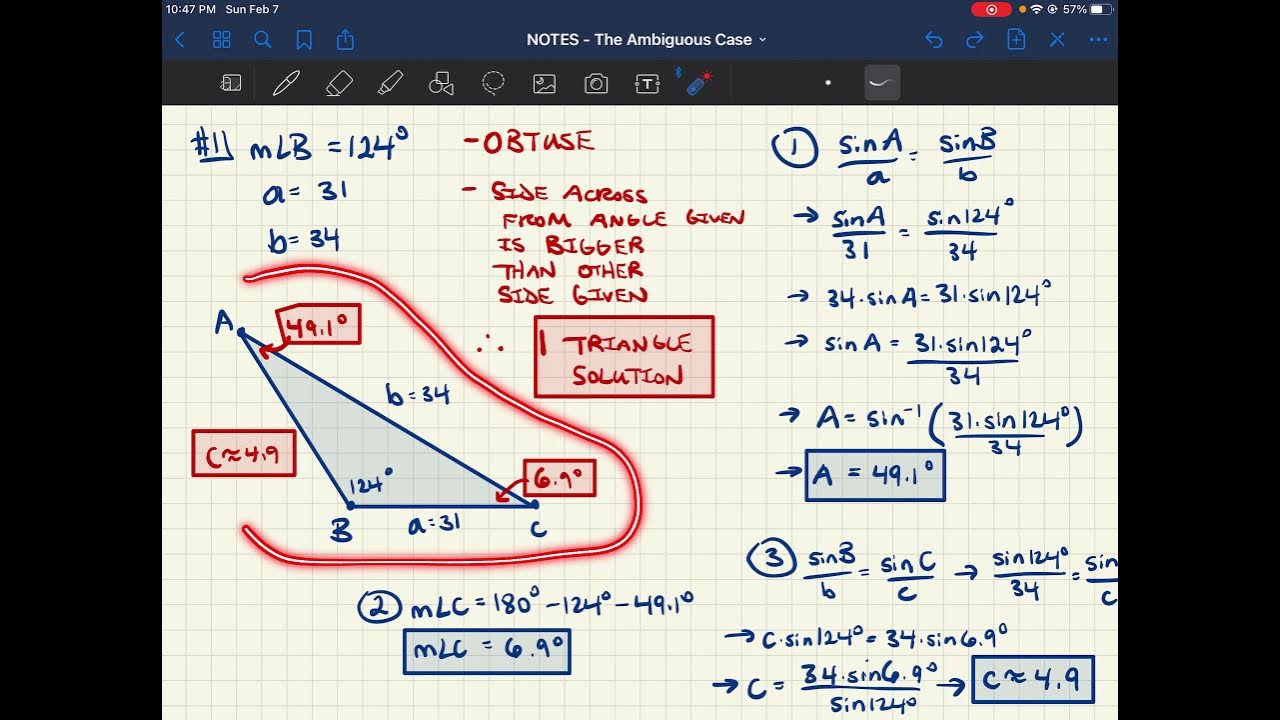 10:47 PM Sun Feb 7
57%
NOTES - The Ambiguous Case
T
#11 m∠B = 124°
a = 31
b = 34
- OBTUSE
- SIDE ACROSS
FROM ANGLE GIVEN
IS BIGGER
THAN OTHER
SIDE GIVEN
∴ 1 TRIANGLE
SOLUTION
A
49.1°
b = 34
C ≈ 4.9
124°
6.9°
B
a = 31
C
② m∠C = 180° - 124° - 49.1°
m∠C = 6.9°
① sinA/a = sinB/b
→ sinA/31 = sin124°/34
→ 34·sinA = 31·sin124°
→ sinA = 31·sin124°/34
→ A = sin⁻¹(31·sin124°/34)
→ A = 49.1°
③ sinB/b = sinC/c → sin124°/34 = sin/c
→ C·sin124° = 34·sin6.9°
→ C = 34·sin6.9°/sin124° → C ≈ 4.9